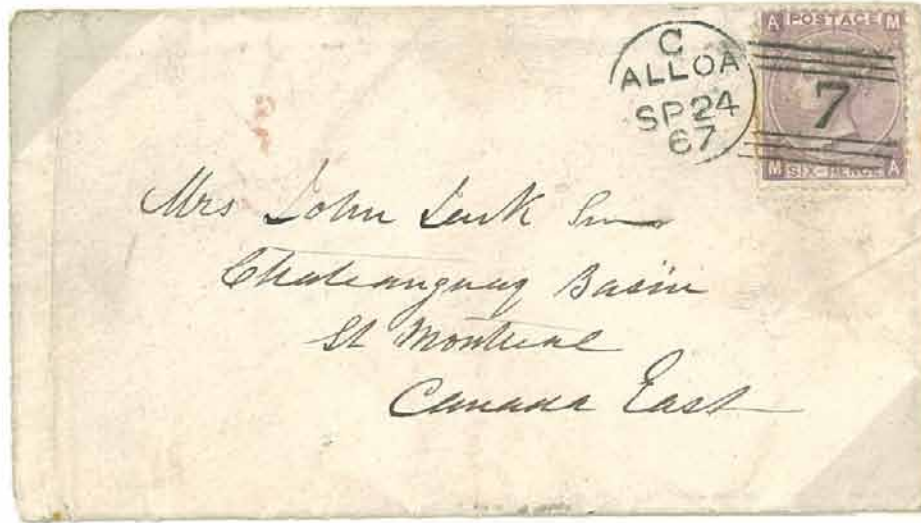 C
ALLOA
SP 24
67
A POSTAGE M
7
M SIX-PENCE A
Mrs John
Chateauguay Basin
St Montreal
Canada East